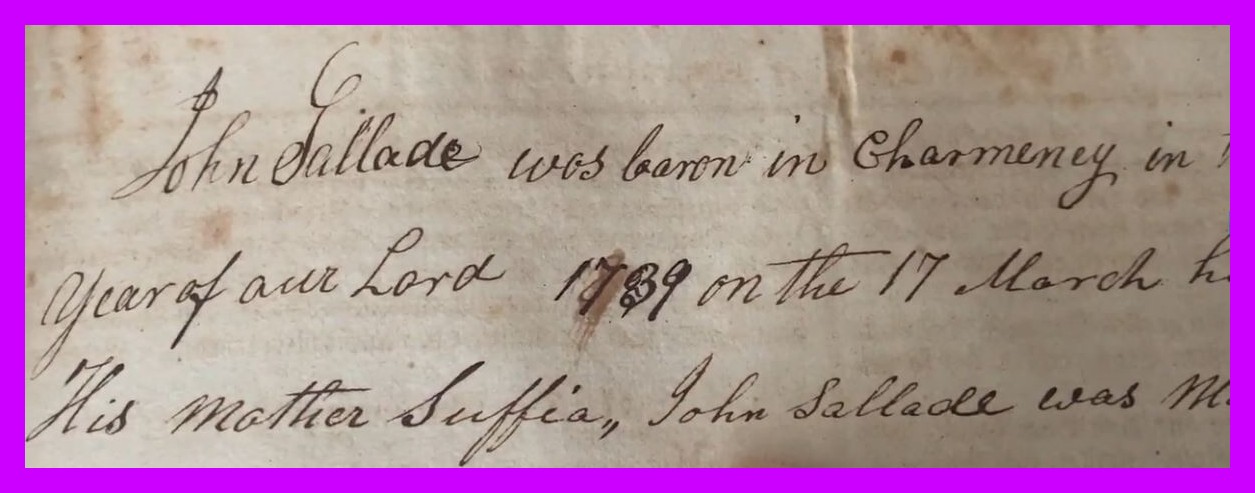 John Sallade was baron in Charmeney in
Year of aur Lord 1739 on the 17 March
His mother Suffia,, John Sallade was